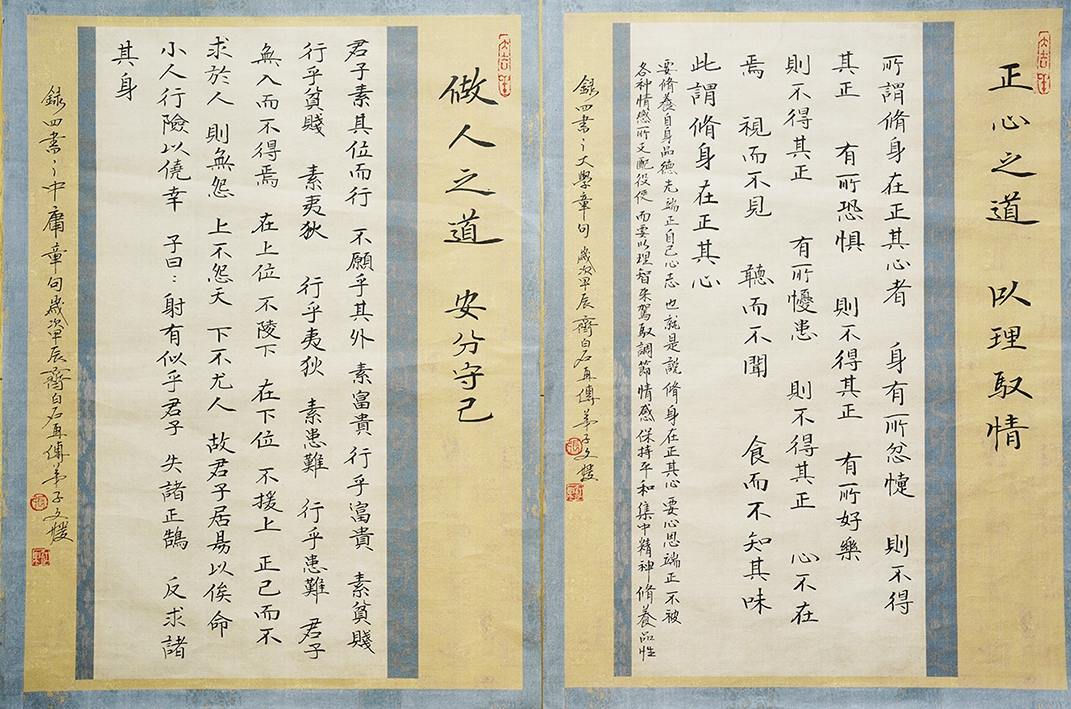 正心之道 以理馭情
所謂脩身在正其心者 身有所忿懥 則不得
其正 有所恐懼 則不得其正 有所好樂
則不得其正 有所懮患 則不得其正 心不在
焉 視而不見 聽而不聞 食而不知其味
此謂脩身在正其心
要脩養自身品德先端正自己心志 也就是說 脩身在正其心 要心思端正不被
各种情感所支配役使 而要以理智來駕馭調節情感 保持平和 集中精神 脩養品性
録四書〻大學章句 歲次甲辰 齊白石再傳弟子文
做人之道 安分守己
君子素其位而行 不願乎其外 素富貴行乎富貴 素貧賤
行乎貧賤 素夷狄 行乎夷狄 素患難 行乎患難 君子
無入而不得焉 在上位不陵下 在下位不援上 正己而不
求於人 則無怨 上不怨天 下不尤人 故君子居易以俟命
小人行險以僥幸 子曰：射有似乎君子 失諸正鵠 反求諸
其身
録四書〻中庸章句歲次甲辰齊白石再傳弟子文